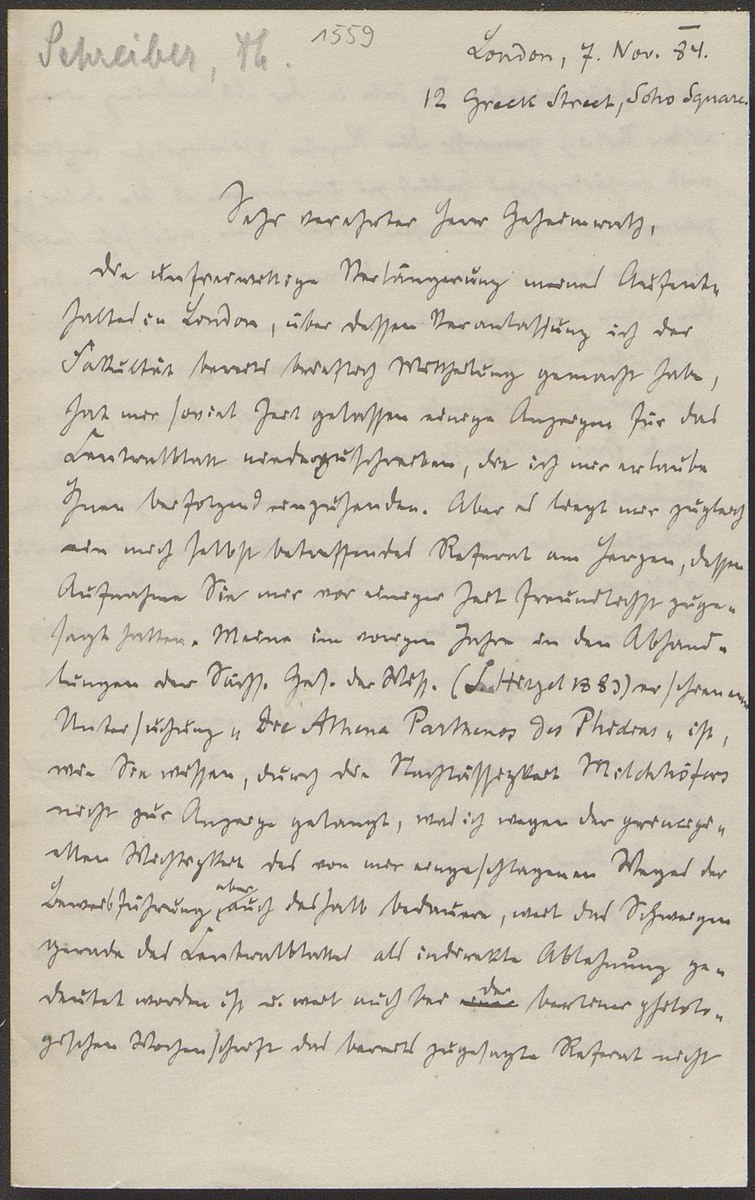 Schreiber, Th.
1559
London, 7. Nov. 84.
12 Greek Street, Soho Square.
Sehr verehrter Herr Geheimrath,
Die unfreiwillige Verlängerung meines Aufent-
haltes in London, über dessen Veranlassung ich der
Fakultät bereits brieflich Mittheilung gemacht habe,
hat mir soviel Zeit gelassen einige Anzeigen für das
Centralblatt niederzuschreiben, die ich mir erlaube
Ihnen beifolgend einzusenden. Aber es liegt mir zugleich
ein mich selbst betreffendes Referat am Herzen, dessen
Aufnahme Sie mir vor einiger Zeit freundlichst zuge-
sagt hatten. Meine im vorigen Jahre in den Abhand-
lungen der Sächs. Ges. der Wiss. (L. Hirzel 1883) erschienene
Untersuchung „Die Athena Parthenos des Phidias" ist,
wie Sie wissen, durch die Nachlässigkeit Milchhöfers
nicht zur Anzeige gelangt, was ich wegen der principi-
ellen Wichtigkeit des von mir eingeschlagenen Weges der
Beweisführung, aber auch deshalb bedauere, weil das Schweigen
gerade des Centralblattes als indirekte Ablehnung ge-
deutet worden ist u. weil auch bei der berliner philolo-
gischen Wochenschrift das bereits zugesagte Referat nicht